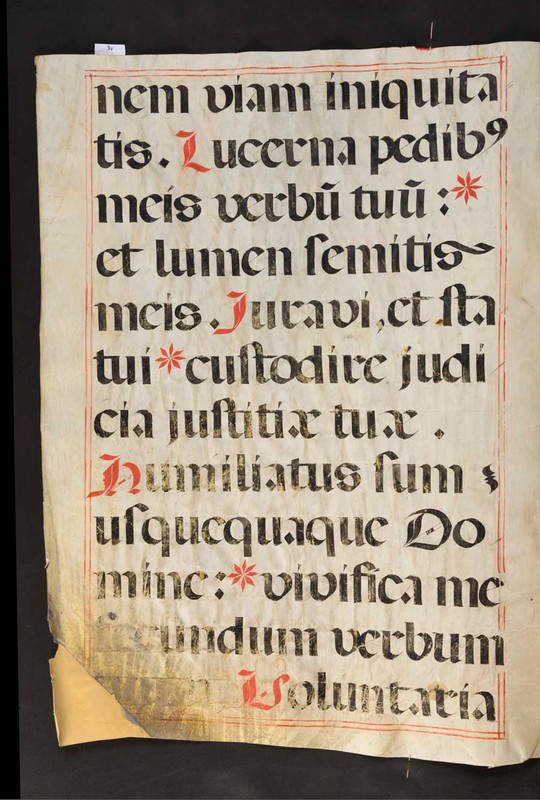 nem viam iniquita
tis. Lucerna pedibꝰ
meis verbū tuū :*
et lumen ſemitis
meis. Juravi, et ſta
tui * cuſtodire judi
cia juſtitiæ tuæ .
Humiliatus ſum
uſquequaque Do
mine : * vivifica me
ſecundum verbum
Voluntaria